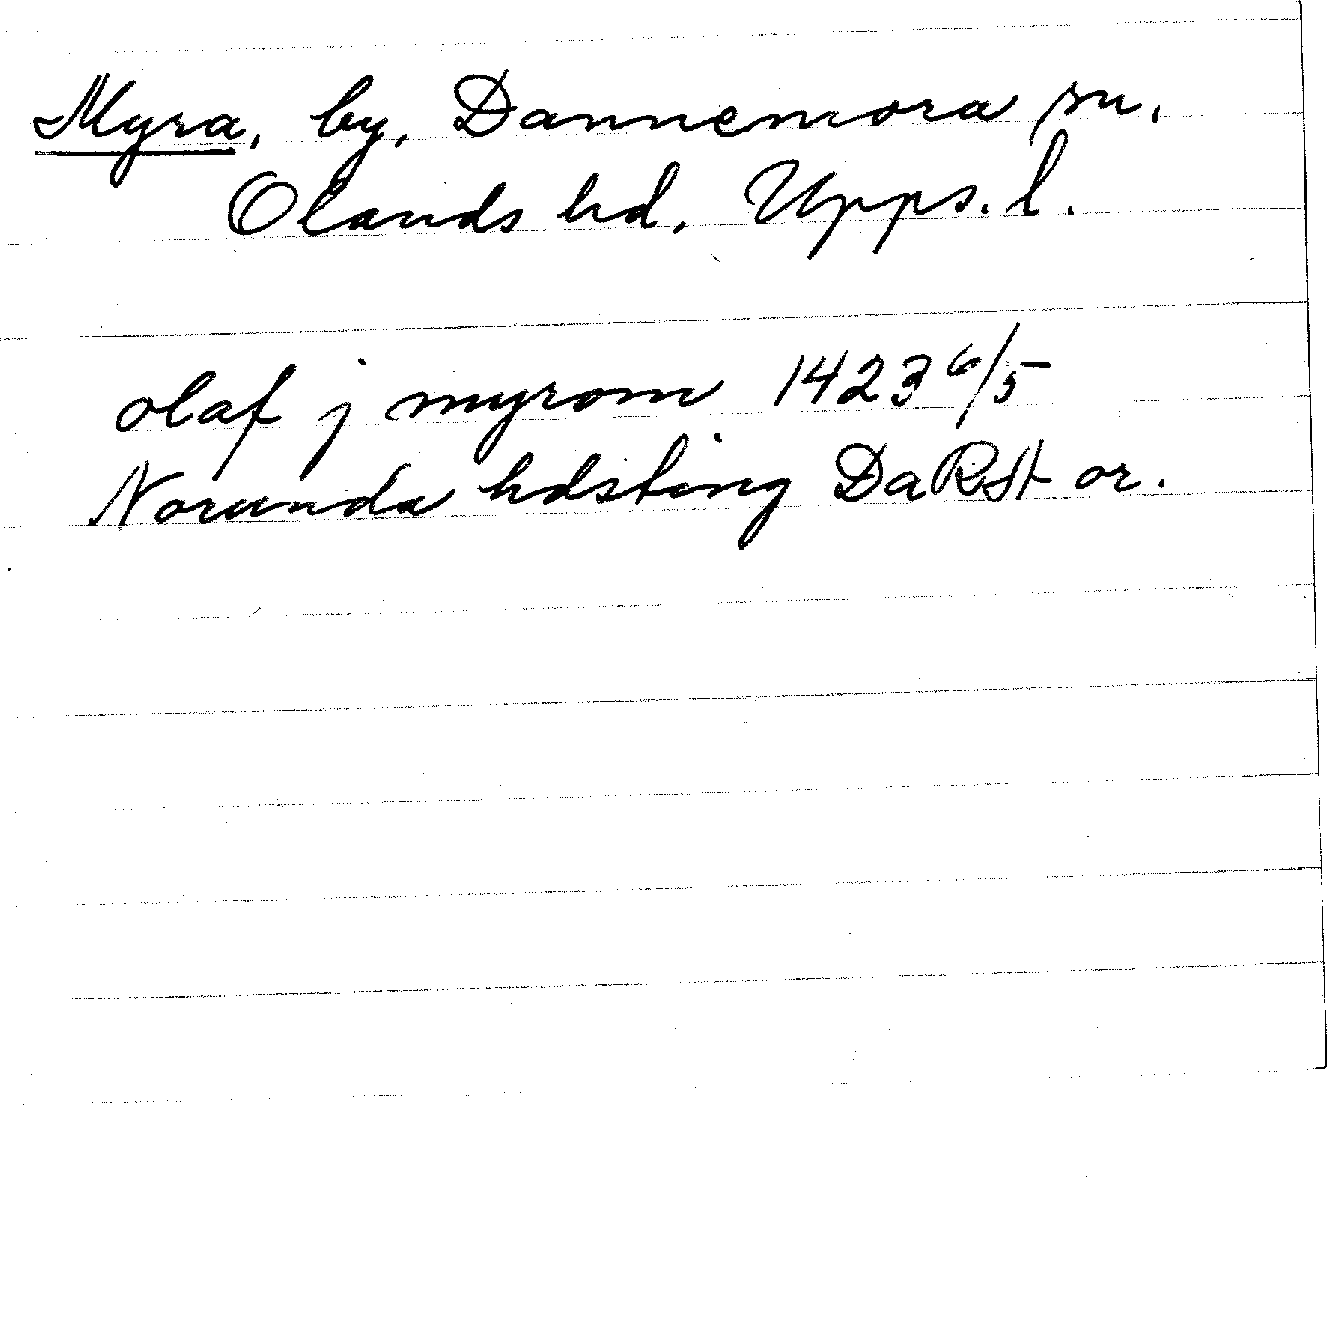 Myra, by, Dannemora sn,
Olands hd. Upps. l.
olaf j myrom 1423 6/5
Norunda hdsting DaRSt or.